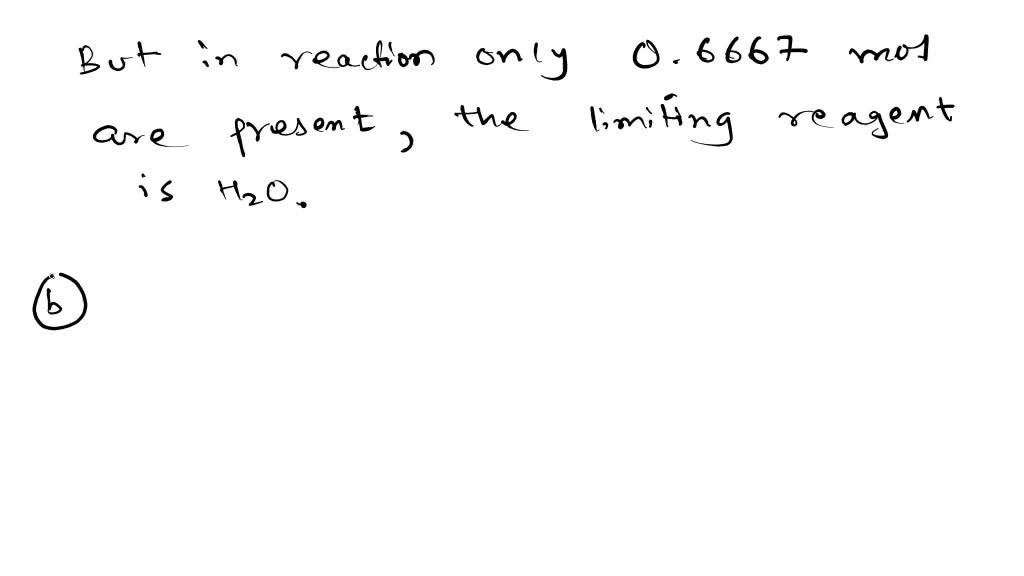 But in reaction only 0.6667 mol
are present, the limiting reagent
is H₂O.
b